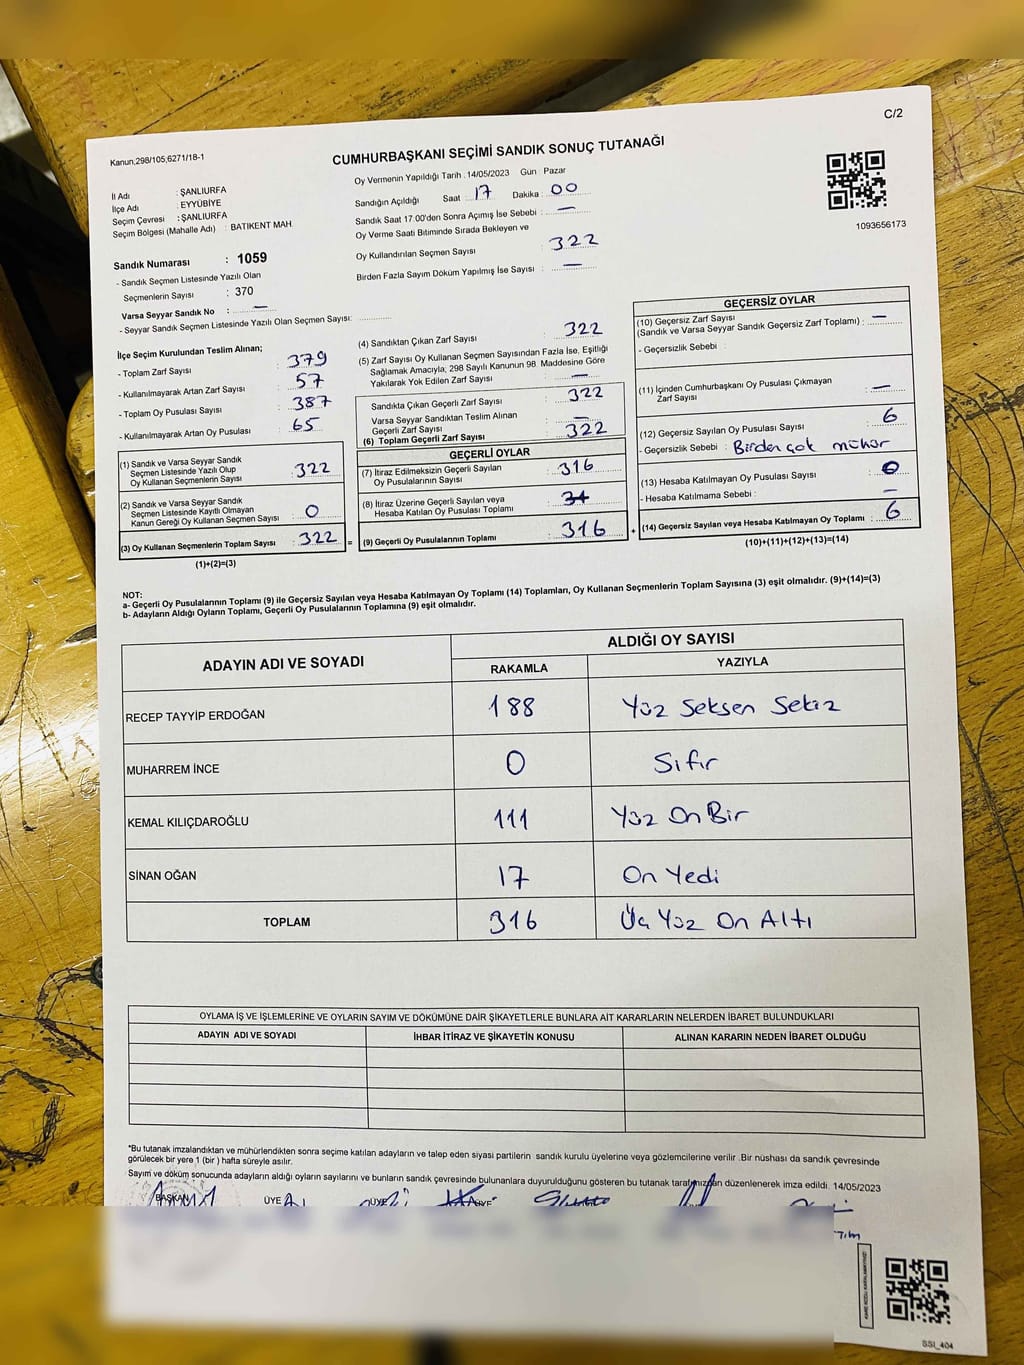 C/2
Kanun,298/105,6271/18-1
CUMHURBAŞKANI SEÇİMİ SANDIK SONUÇ TUTANAĞI
İl Adı : ŞANLIURFA
İlçe Adı : EYYÜBİYE
Seçim Çevresi : ŞANLIURFA
Seçim Bölgesi (Mahalle Adı) : BATIKENT MAH
Oy Vermenin Yapıldığı Tarih : 14/05/2023 Gün Pazar
Sandığın Açıldığı Saat : 17 Dakika : 00
Sandık Saat 17:00'den Sonra Açımış İse Sebebi : —
Oy Verme Saati Bitiminde Sırada Bekleyen ve
Oy Kullandırılan Seçmen Sayısı : 322
Birden Fazla Sayım Döküm Yapılmış İse Sayısı : —
1093656173
Sandık Numarası : 1059
- Sandık Seçmen Listesinde Yazılı Olan
Seçmenlerin Sayısı : 370
Varsa Seyyar Sandık No : —
- Seyyar Sandık Seçmen Listesinde Yazılı Olan Seçmen Sayısı:
İlçe Seçim Kurulundan Teslim Alınan;
- Toplam Zarf Sayısı : 379
- Kullanılmayarak Artan Zarf Sayısı : 57
- Toplam Oy Pusulası Sayısı : 387
- Kullanılmayarak Artan Oy Pusulası : 65
(1) Sandık ve Varsa Seyyar Sandık
Seçmen Listesinde Yazılı Olup
Oy Kullanan Seçmenlerin Sayısı : 322
(2) Sandık ve Varsa Seyyar Sandık
Seçmen Listesinde Kayıtlı Olmayan
Kanun Gereği Oy Kullanan Seçmen Sayısı : 0
(3) Oy Kullanan Seçmenlerin Toplam Sayısı : 322 =
(1)+(2)=(3)
(4) Sandıktan Çıkan Zarf Sayısı : 322
(5) Zarf Sayısı Oy Kullanan Seçmen Sayısından Fazla İse, Eşitliği
Sağlamak Amacıyla; 298 Sayılı Kanunun 98. Maddesine Göre
Yakılarak Yok Edilen Zarf Sayısı : —
Sandıkta Çıkan Geçerli Zarf Sayısı : 322
Varsa Seyyar Sandıktan Teslim Alınan
Geçerli Zarf Sayısı : —
(6) Toplam Geçerli Zarf Sayısı : 322
GEÇERLİ OYLAR
(7) İtiraz Edilmeksizin Geçerli Sayılan
Oy Pusulalarının Sayısı : 316
(8) İtiraz Üzerine Geçerli Sayılan veya
Hesaba Katılan Oy Pusulası Toplamı :
(9) Geçerli Oy Pusulalarının Toplamı : 316 +
GEÇERSİZ OYLAR
(10) Geçersiz Zarf Sayısı
(Sandık ve Varsa Seyyar Sandık Geçersiz Zarf Toplamı) : —
- Geçersizlik Sebebi :
(11) İçinden Cumhurbaşkanı Oy Pusulası Çıkmayan
Zarf Sayısı : —
(12) Geçersiz Sayılan Oy Pusulası Sayısı : 6
- Geçersizlik Sebebi : Birden çok mühür
(13) Hesaba Katılmayan Oy Pusulası Sayısı : 0
- Hesaba Katılmama Sebebi : —
(14) Geçersiz Sayılan veya Hesaba Katılmayan Oy Toplamı : 6
(10)+(11)+(12)+(13)=(14)
NOT:
a- Geçerli Oy Pusulalarının Toplamı (9) ile Geçersiz Sayılan veya Hesaba Katılmayan Oy Toplamı (14) Toplamları, Oy Kullanan Seçmenlerin Toplam Sayısına (3) eşit olmalıdır. (9)+(14)=(3)
b- Adayların Aldığı Oyların Toplamı, Geçerli Oy Pusulalarının Toplamına (9) eşit olmalıdır.
ADAYIN ADI VE SOYADI
ALDIĞI OY SAYISI
RAKAMLA YAZIYLA
RECEP TAYYİP ERDOĞAN 188 Yüz Seksen Sekiz
MUHARREM İNCE 0 Sıfır
KEMAL KILIÇDAROĞLU 111 Yüz On Bir
SİNAN OĞAN 17 On Yedi
TOPLAM 316 Üç Yüz On Altı
OYLAMA İŞ VE İŞLEMLERİNE VE OYLARIN SAYIM VE DÖKÜMÜNE DAİR ŞİKAYETLERLE BUNLARA AİT KARARLARIN NELERDEN İBARET BULUNDUKLARI
ADAYIN ADI VE SOYADI İHBAR İTİRAZ VE ŞİKAYETİN KONUSU ALINAN KARARIN NEDEN İBARET OLDUĞU
*Bu tutanak imzalandıktan ve mühürlendikten sonra seçime katılan adayların ve talep eden siyasi partilerin sandık kurulu üyelerine veya gözlemcilerine verilir .Bir nüshası da sandık çevresinde
görülecek bir yere 1 (bir ) hafta süreyle asılır.
Sayım ve döküm sonucunda adayların aldığı oyların sayılarını ve bunların sandık çevresinde bulunanlara duyurulduğunu gösteren bu tutanak tarafımızdan düzenlenerek imza edildi. 14/05/2023
BAŞKAN ÜYE ÜYE ÜYE
SSI_404